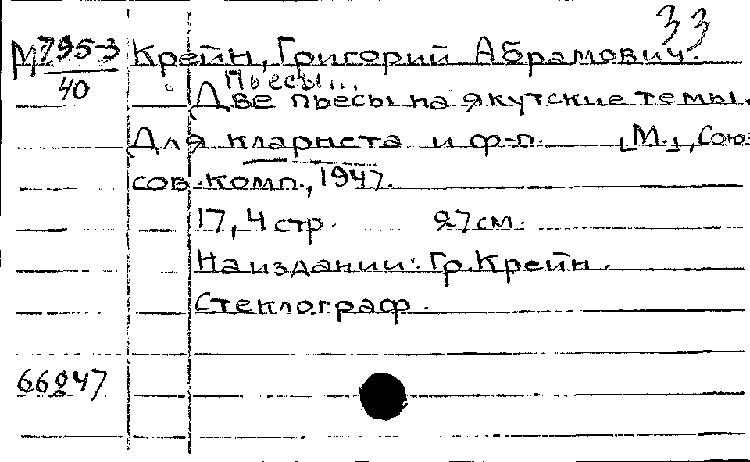 33
М 795-3 Крейн, Григорий Абрамович.
40 Пьесы...
Две пьесы на якутские темы.
Для кларнета и ф-п. [М.], Союз
сов. комп., 1947.
17, 4 стр. 27 см.
На издании: Гр. Крейн.
Стеклограф.
66247